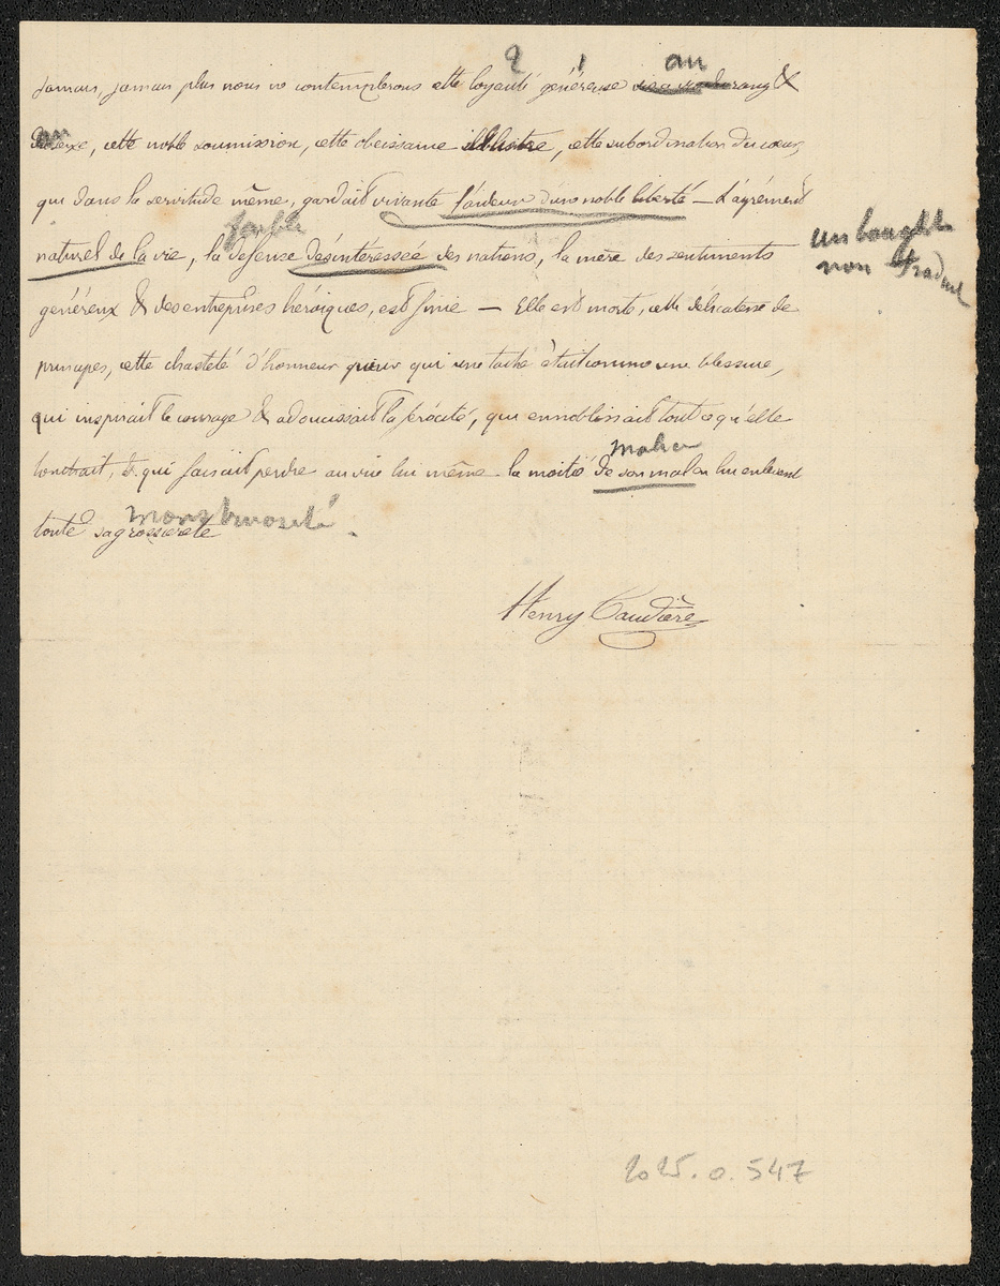 2 1 au
Jamais, jamais plus nous ne contemplerons cette loyauté généreuse rang &
au sexe, cette noble soumission, cette obeissance illustre, cette subordination du cœur,
qui dans la servitude même, gardait vivante l'ardeur d'une noble liberté — L'agrément
naturel de la vie, la défense désintéressée des nations, la mère des sentiments
unbought
non traduit
généreux & des entreprises héroiques, est finie — Elle est morte, cette délicatesse de
principes, cette chasteté d'honneur pour qui une tache était comme une blessure,
qui inspirait le courage & adoucissait la férocité, qui ennoblissait tout ce qu'elle
touchait, & qui faisait perdre au vice lui même la moitié de son mal en lui enlevant
toute sa grossiereté
monstruosité
Henry Caudière
2025.0.547